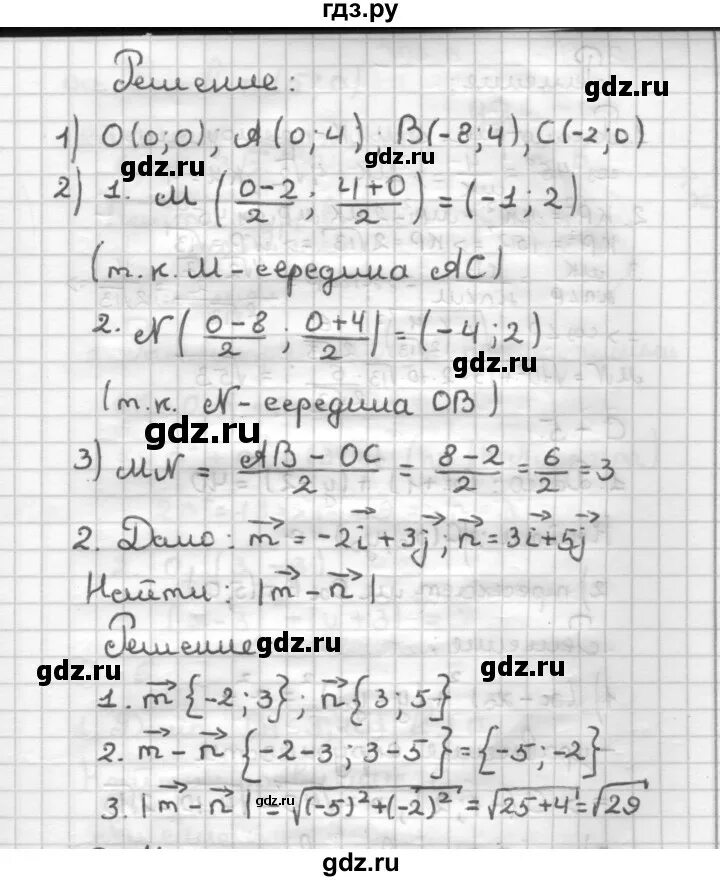 гдз.ру
Решение:
gdz.ru
1) O(0;0); A(0;4); B(-8;4), C(-2;0)
gdz.ru
2) 1. M (0-2/2 ; 4+0/2) = (-1; 2)
gdz.ru
(т.к. M - середина AC)
2. N (0-8/2 ; 0+4/2) = (-4; 2)
gdz.ru
(т.к. N - середина OB)
gdz.ru
3) MN = AB - OC/2 = 8-2/2 = 6/2 = 3
2. Дано: m⃗ = -2i⃗ + 3j⃗; n⃗ = 3i⃗ + 5j⃗
Найти: |m⃗ - n⃗|
Решение
gdz.ru
gdz.ru
gdz.ru
1. m⃗ {-2; 3}; n⃗ {3; 5}
2. m⃗ - n⃗ {-2-3; 3-5} = {-5; -2}
3. |m⃗ - n⃗| = √(-5)²+(-2)² = √25+4 = √29
gdz.ru
gdz.ru